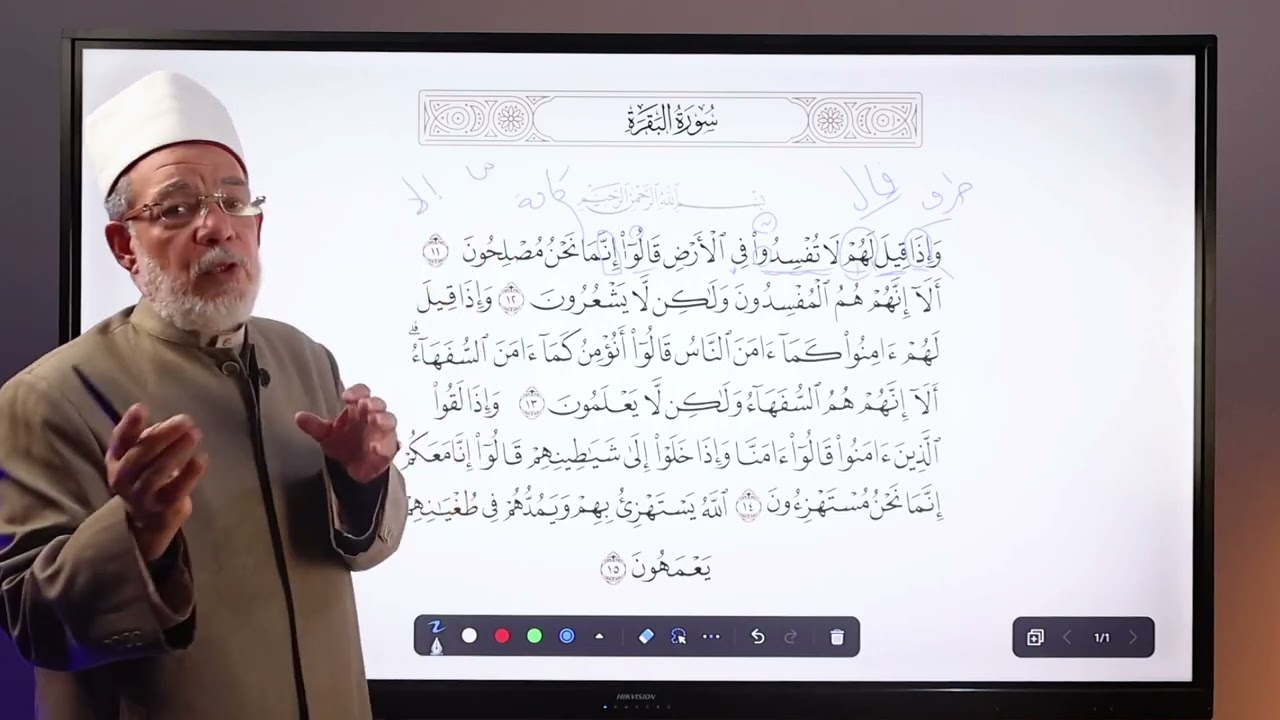 سُورَةُ البَقَرَةِ
بِسْمِ اللَّهِ الرَّحْمَٰنِ الرَّحِيمِ
قال
وَإِذَا قِيلَ لَهُمْ لَا تُفْسِدُوا۟ فِى ٱلْأَرْضِ قَالُوٓا۟ إِنَّمَا نَحْنُ مُصْلِحُونَ ١١
أَلَآ إِنَّهُمْ هُمُ ٱلْمُفْسِدُونَ وَلَـٰكِن لَّا يَشْعُرُونَ ١٢ وَإِذَا قِيلَ
لَهُمْ ءَامِنُوا۟ كَمَآ ءَامَنَ ٱلنَّاسُ قَالُوٓا۟ أَنُؤْمِنُ كَمَآ ءَامَنَ ٱلسُّفَهَآءُ ۗ
أَلَآ إِنَّهُمْ هُمُ ٱلسُّفَهَآءُ وَلَـٰكِن لَّا يَعْلَمُونَ ١٣ وَإِذَا لَقُوا۟
ٱلَّذِينَ ءَامَنُوا۟ قَالُوٓا۟ ءَامَنَّا وَإِذَا خَلَوْا۟ إِلَىٰ شَيَـٰطِينِهِمْ قَالُوٓا۟ إِنَّا مَعَكُمْ
إِنَّمَا نَحْنُ مُسْتَهْزِءُونَ ١٤ ٱللَّهُ يَسْتَهْزِئُ بِهِمْ وَيَمُدُّهُمْ فِى طُغْيَـٰنِهِمْ
يَعْمَهُونَ ١٥
1/1
HIKVISION